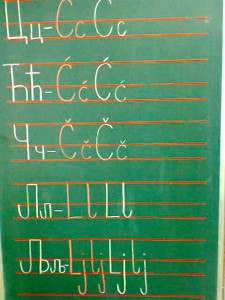 Цц-СcCc
Ћћ-ĆćĆć
Чч-ČčČč
Лл-LlLl
Љљ-LjljLjlj